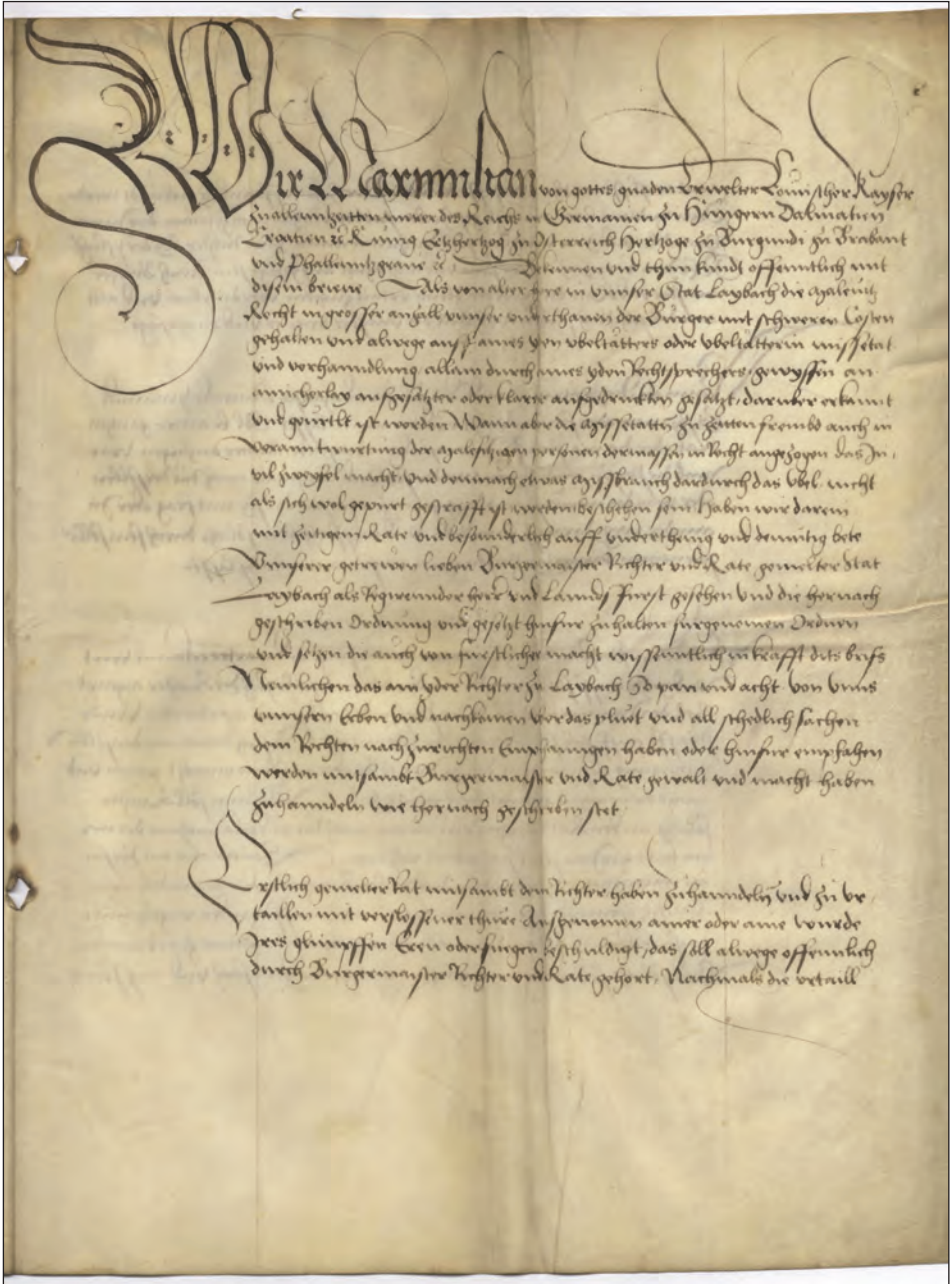 Wir Maximilian von gottes gnaden Erwelter Romischer Kayser
zu allenntzeitten merer des Reichs in Germanien zu Hungern Dalmatien
Croatien ꝛc Kunig Ertzhertzog zu Osterreich Hertzoge zu Burgundi zu Brabant
vnd Phallenntzgraue ꝛc Bekennen vnd thun kundt offenntlich mit
disem brieue Als von alter here in vnnser Stat Laybach die Malefitz
Recht in grosser antzall vnnser vnderthanen der Burger mit schweren Costen
gehalten vnd alwege auff aines yden vbeltatters oder vbeltatterin missetat
vnd verhanndlung allain durch aines yden Rechtsprechers gewyssen an
ainicherlay aufgesatzter oder klarer aufgedruckten gesatzt, daruber erkannt
vnd geurtlt ist worden Wann aber die Missetatten zu zeitten frembd auch in
verannttwurtung der Malefitzigen personen dermassen in Recht angezogen das In
vil zweyfel macht, vnd demnach etwas Missbrauch dardurch das vbel nicht
als sich wol gepurt gestrafft ist worden beschehen sein Haben wir darein
mit zeitigem Rate vnd besonnderlich auff vnderthenig vnd demutig bete
Vnnserer getrewen lieben Burgermaister Richter vnd Rate gemelter Stat
Laybach als Regierunder herr vnd Lannds Furst gesehen vnd die hernach
geschriben Ordnung vnd gesetzt hinfur zuhalten furgenomen Ordnen
vnd setzen die auch von furstlicher macht wissenntlich in krafft dits briefs
Nemlichen das ain yder Richter zu Laybach So pan vnd acht von vnns
vnnsern Erben vnd nachkomen vber das pluet vnd all schedlich sachen
dem Rechten nach zurichten Emphanngen haben oder hinfur emphahen
werden mitsambt Burgermaister vnd Rate gewalt vnd macht haben
zuhanndeln wie hernach geschriben stet
Erstlich gemelter Rat mitsambt dem Richter haben zuhanndeln vnd zu vr,
taillen mit verslossener thure Ausgenomen ainer oder aine wurde
Ires glimpffen Eren oder fuegen beschuldigt, das soll alwege offennlich
durch Burgermaister Richter vnd Rate gehort, Nachmals die vrtaill